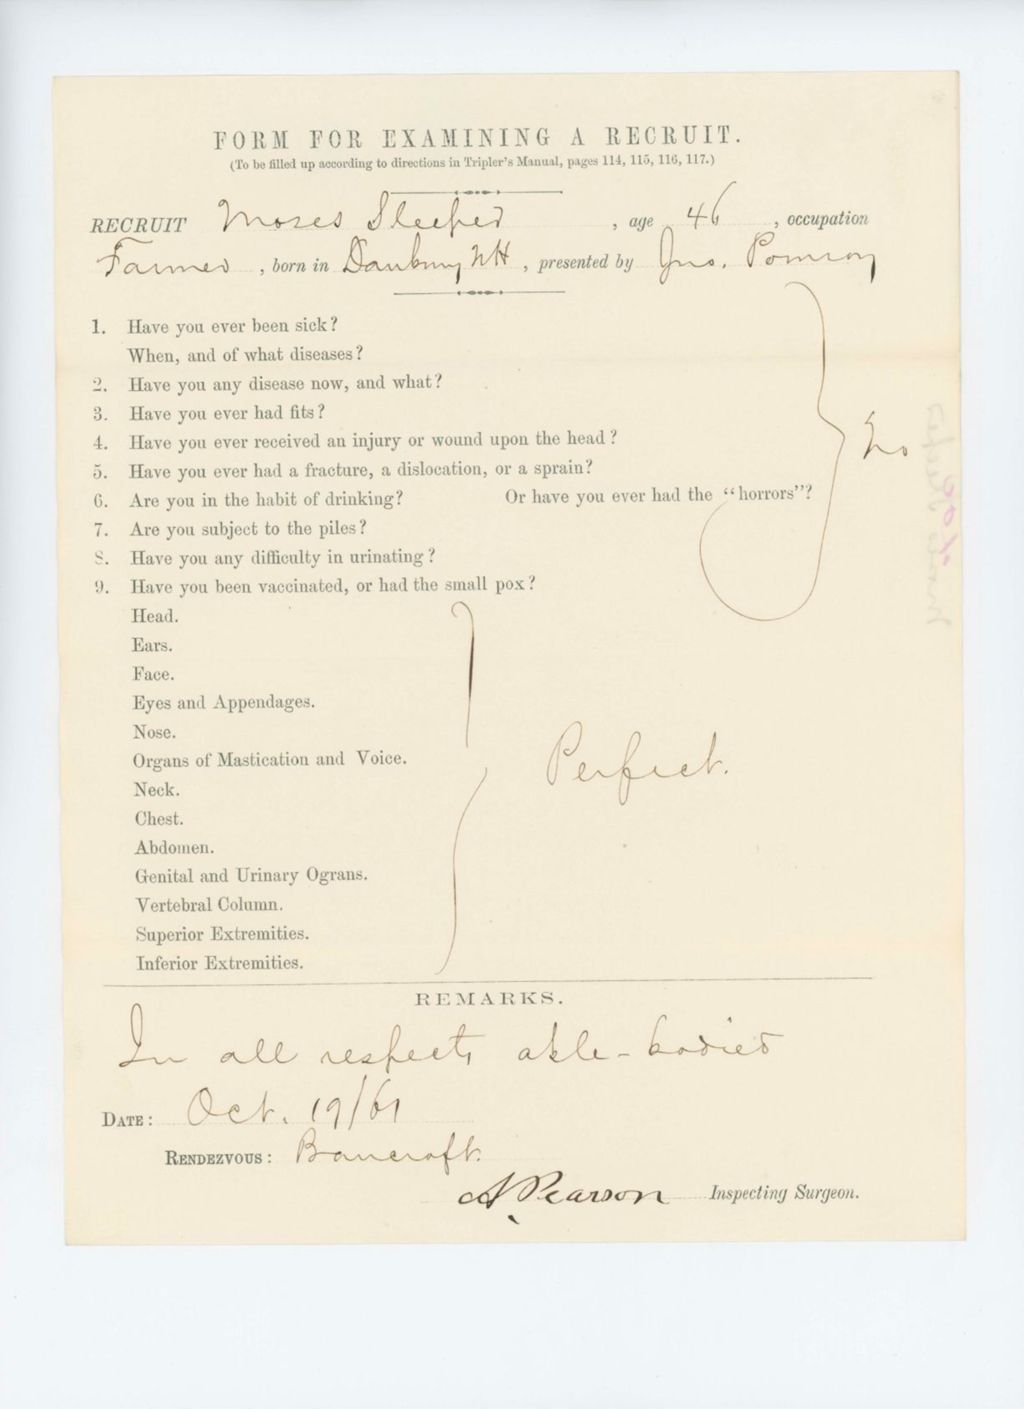 FORM FOR EXAMINING A RECRUIT.
(To be filled up according to directions in Tripler's Manual, pages 114, 115, 116, 117.)
RECRUIT Moses Sleeper, age 46, occupation
Farmer, born in Danbury NH, presented by Jno. Pomroy
1. Have you ever been sick?
When, and of what diseases?
2. Have you any disease now, and what?
3. Have you ever had fits?
4. Have you ever received an injury or wound upon the head?
No
5. Have you ever had a fracture, a dislocation, or a sprain?
6. Are you in the habit of drinking? Or have you ever had the "horrors"?
7. Are you subject to the piles?
8. Have you any difficulty in urinating?
9. Have you been vaccinated, or had the small pox?
Head.
Ears.
Face.
Eyes and Appendages.
Nose.
Organs of Mastication and Voice.
Perfect.
Neck.
Chest.
Abdomen.
Genital and Urinary Ograns.
Vertebral Column.
Superior Extremities.
Inferior Extremities.
REMARKS.
In all respects able-bodied
DATE: Oct. 19/61
RENDEZVOUS: Bancroft.
A Pearson Inspecting Surgeon.